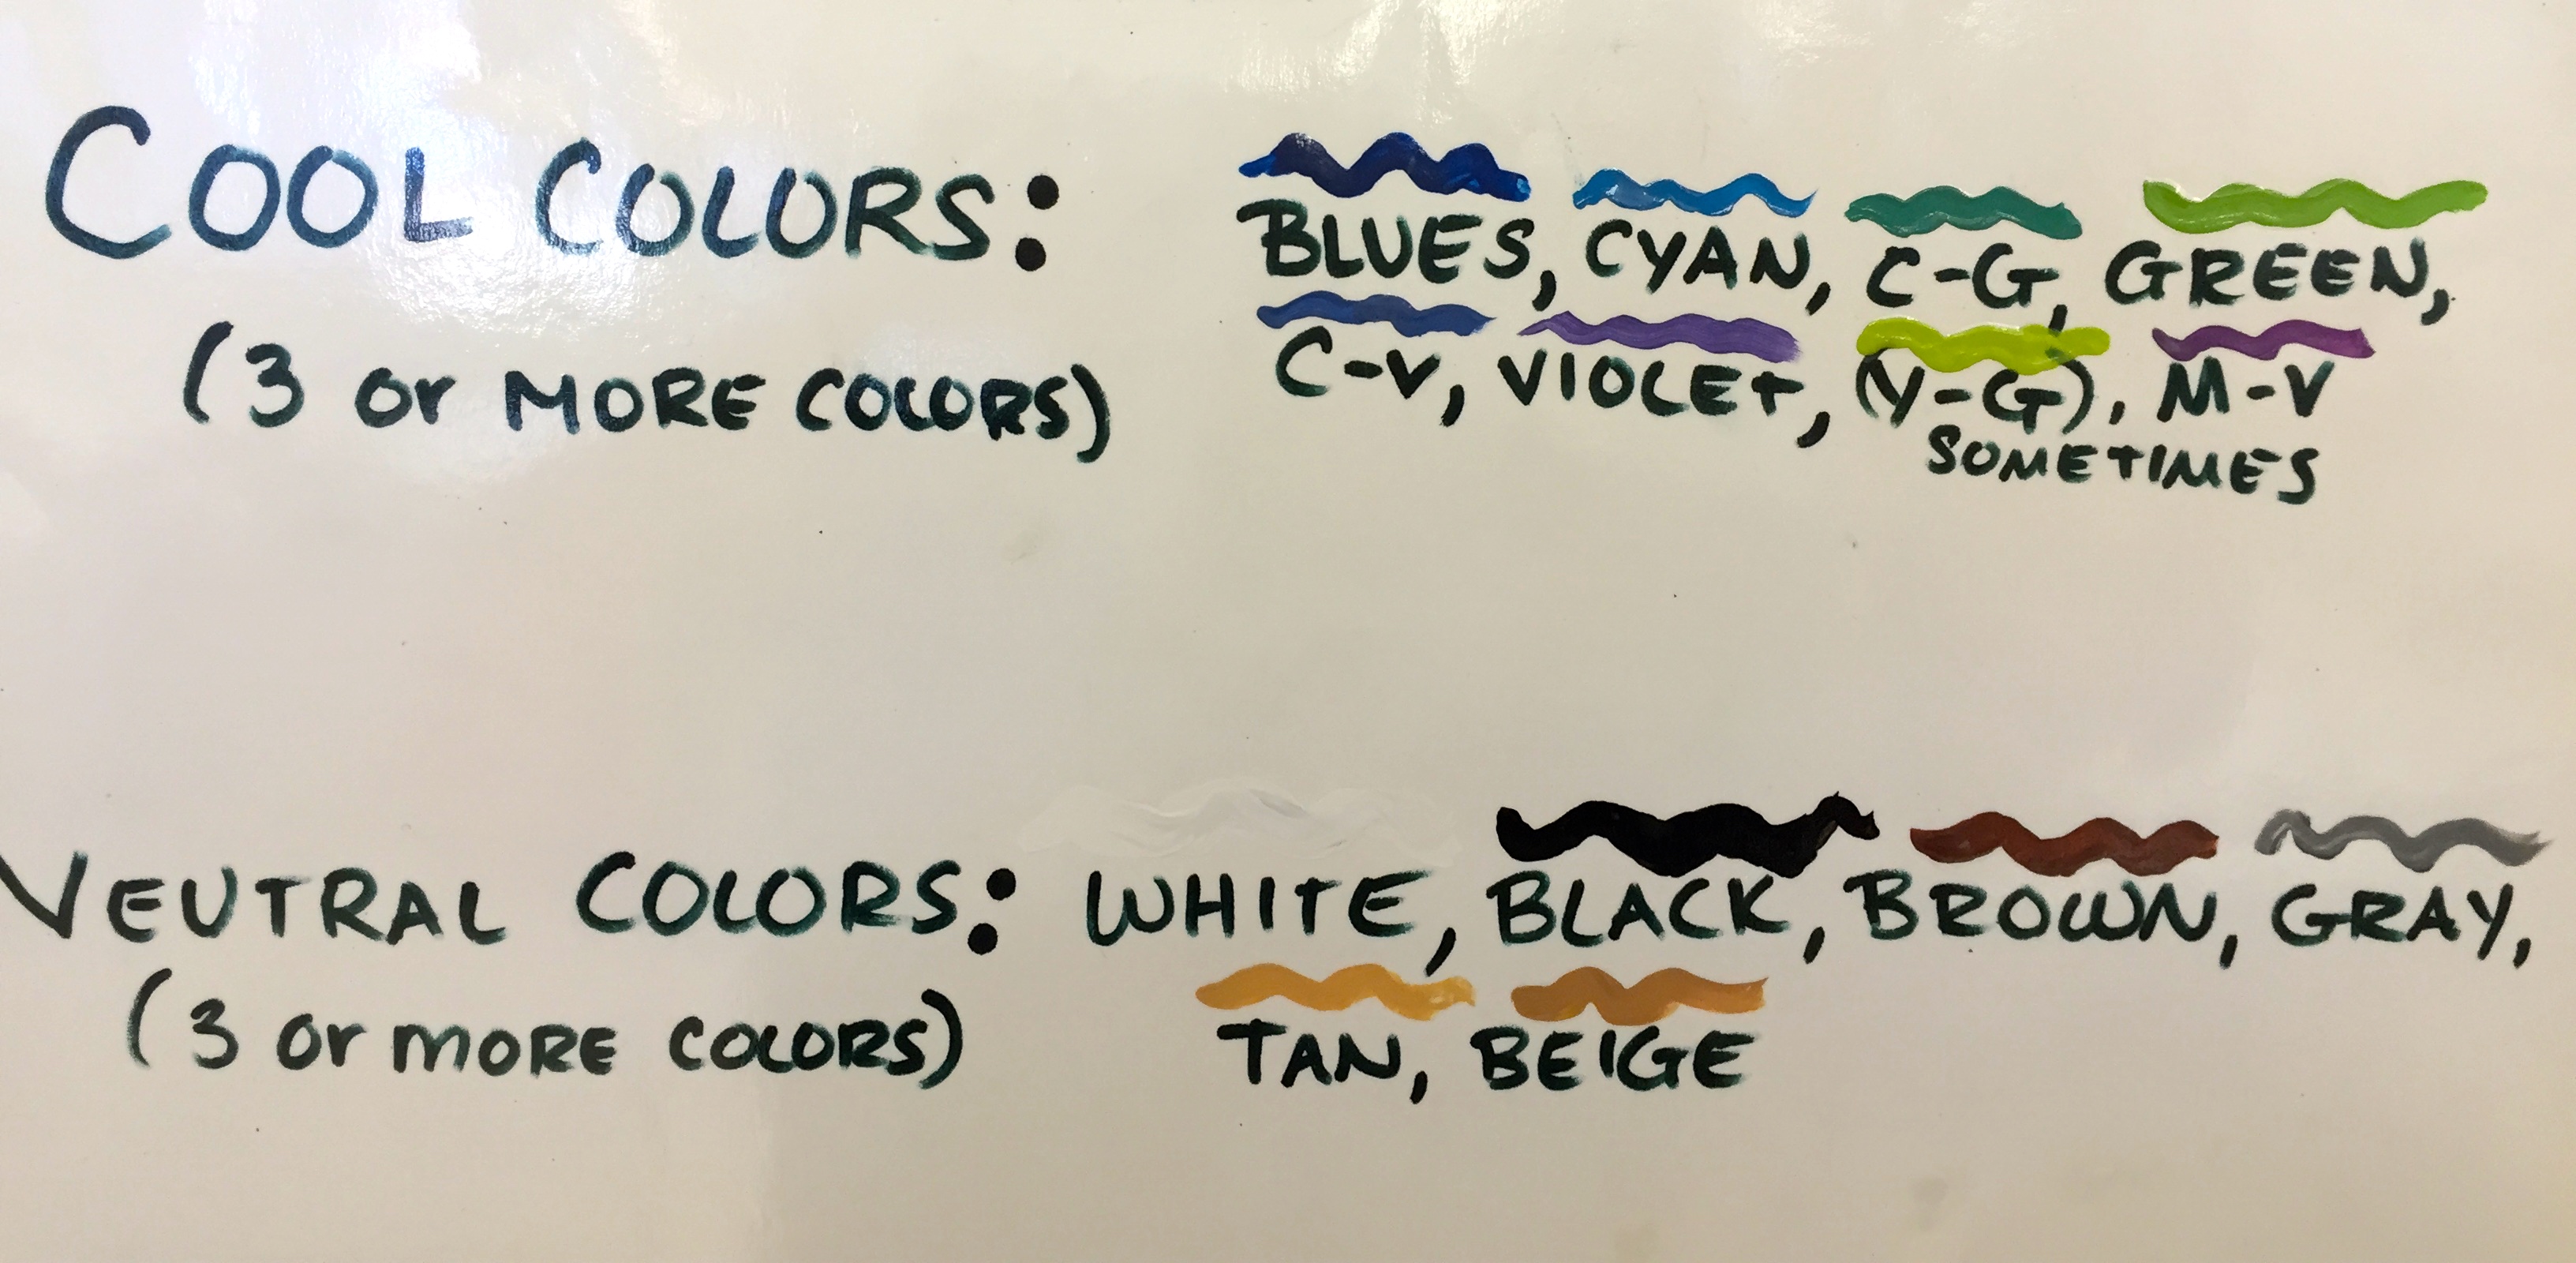 COOL COLORS: BLUES, CYAN, C-G, GREEN,
(3 or MORE COLORS) C-V, VIOLET, (Y-G), M-V
SOMETIMES
NEUTRAL COLORS: WHITE, BLACK, BROWN, GRAY,
(3 or MORE COLORS) TAN, BEIGE